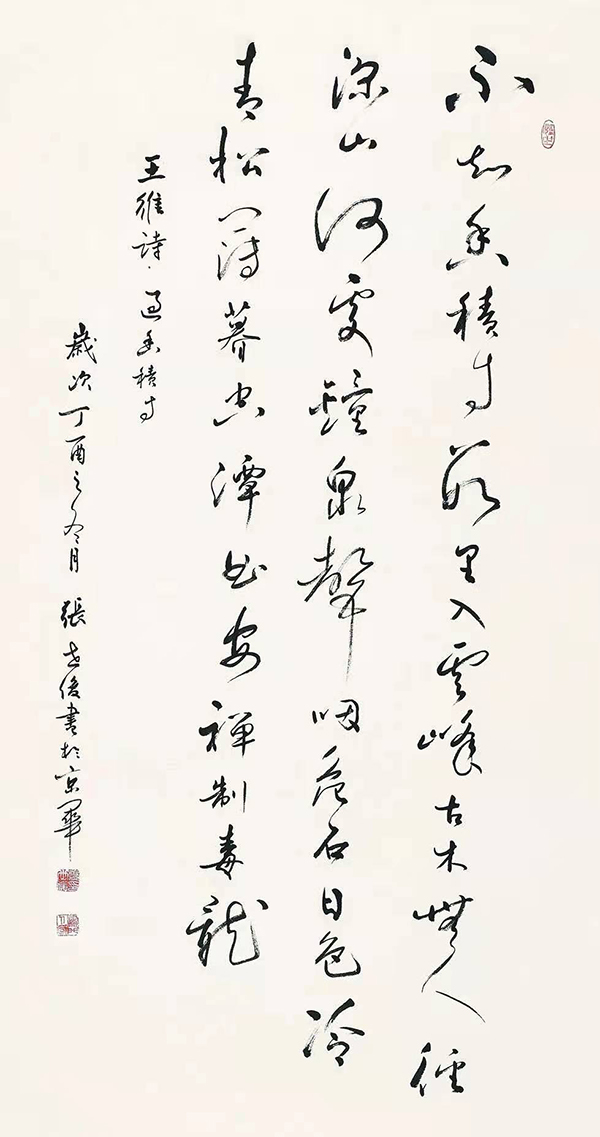 不知香積寺數里入雲峰古木無人徑
深山何處鐘泉聲咽危石日色冷
青松薄暮空潭曲安禪制毒龍
王維詩·過香積寺
歲次丁酉之冬月 張世俊書於京華